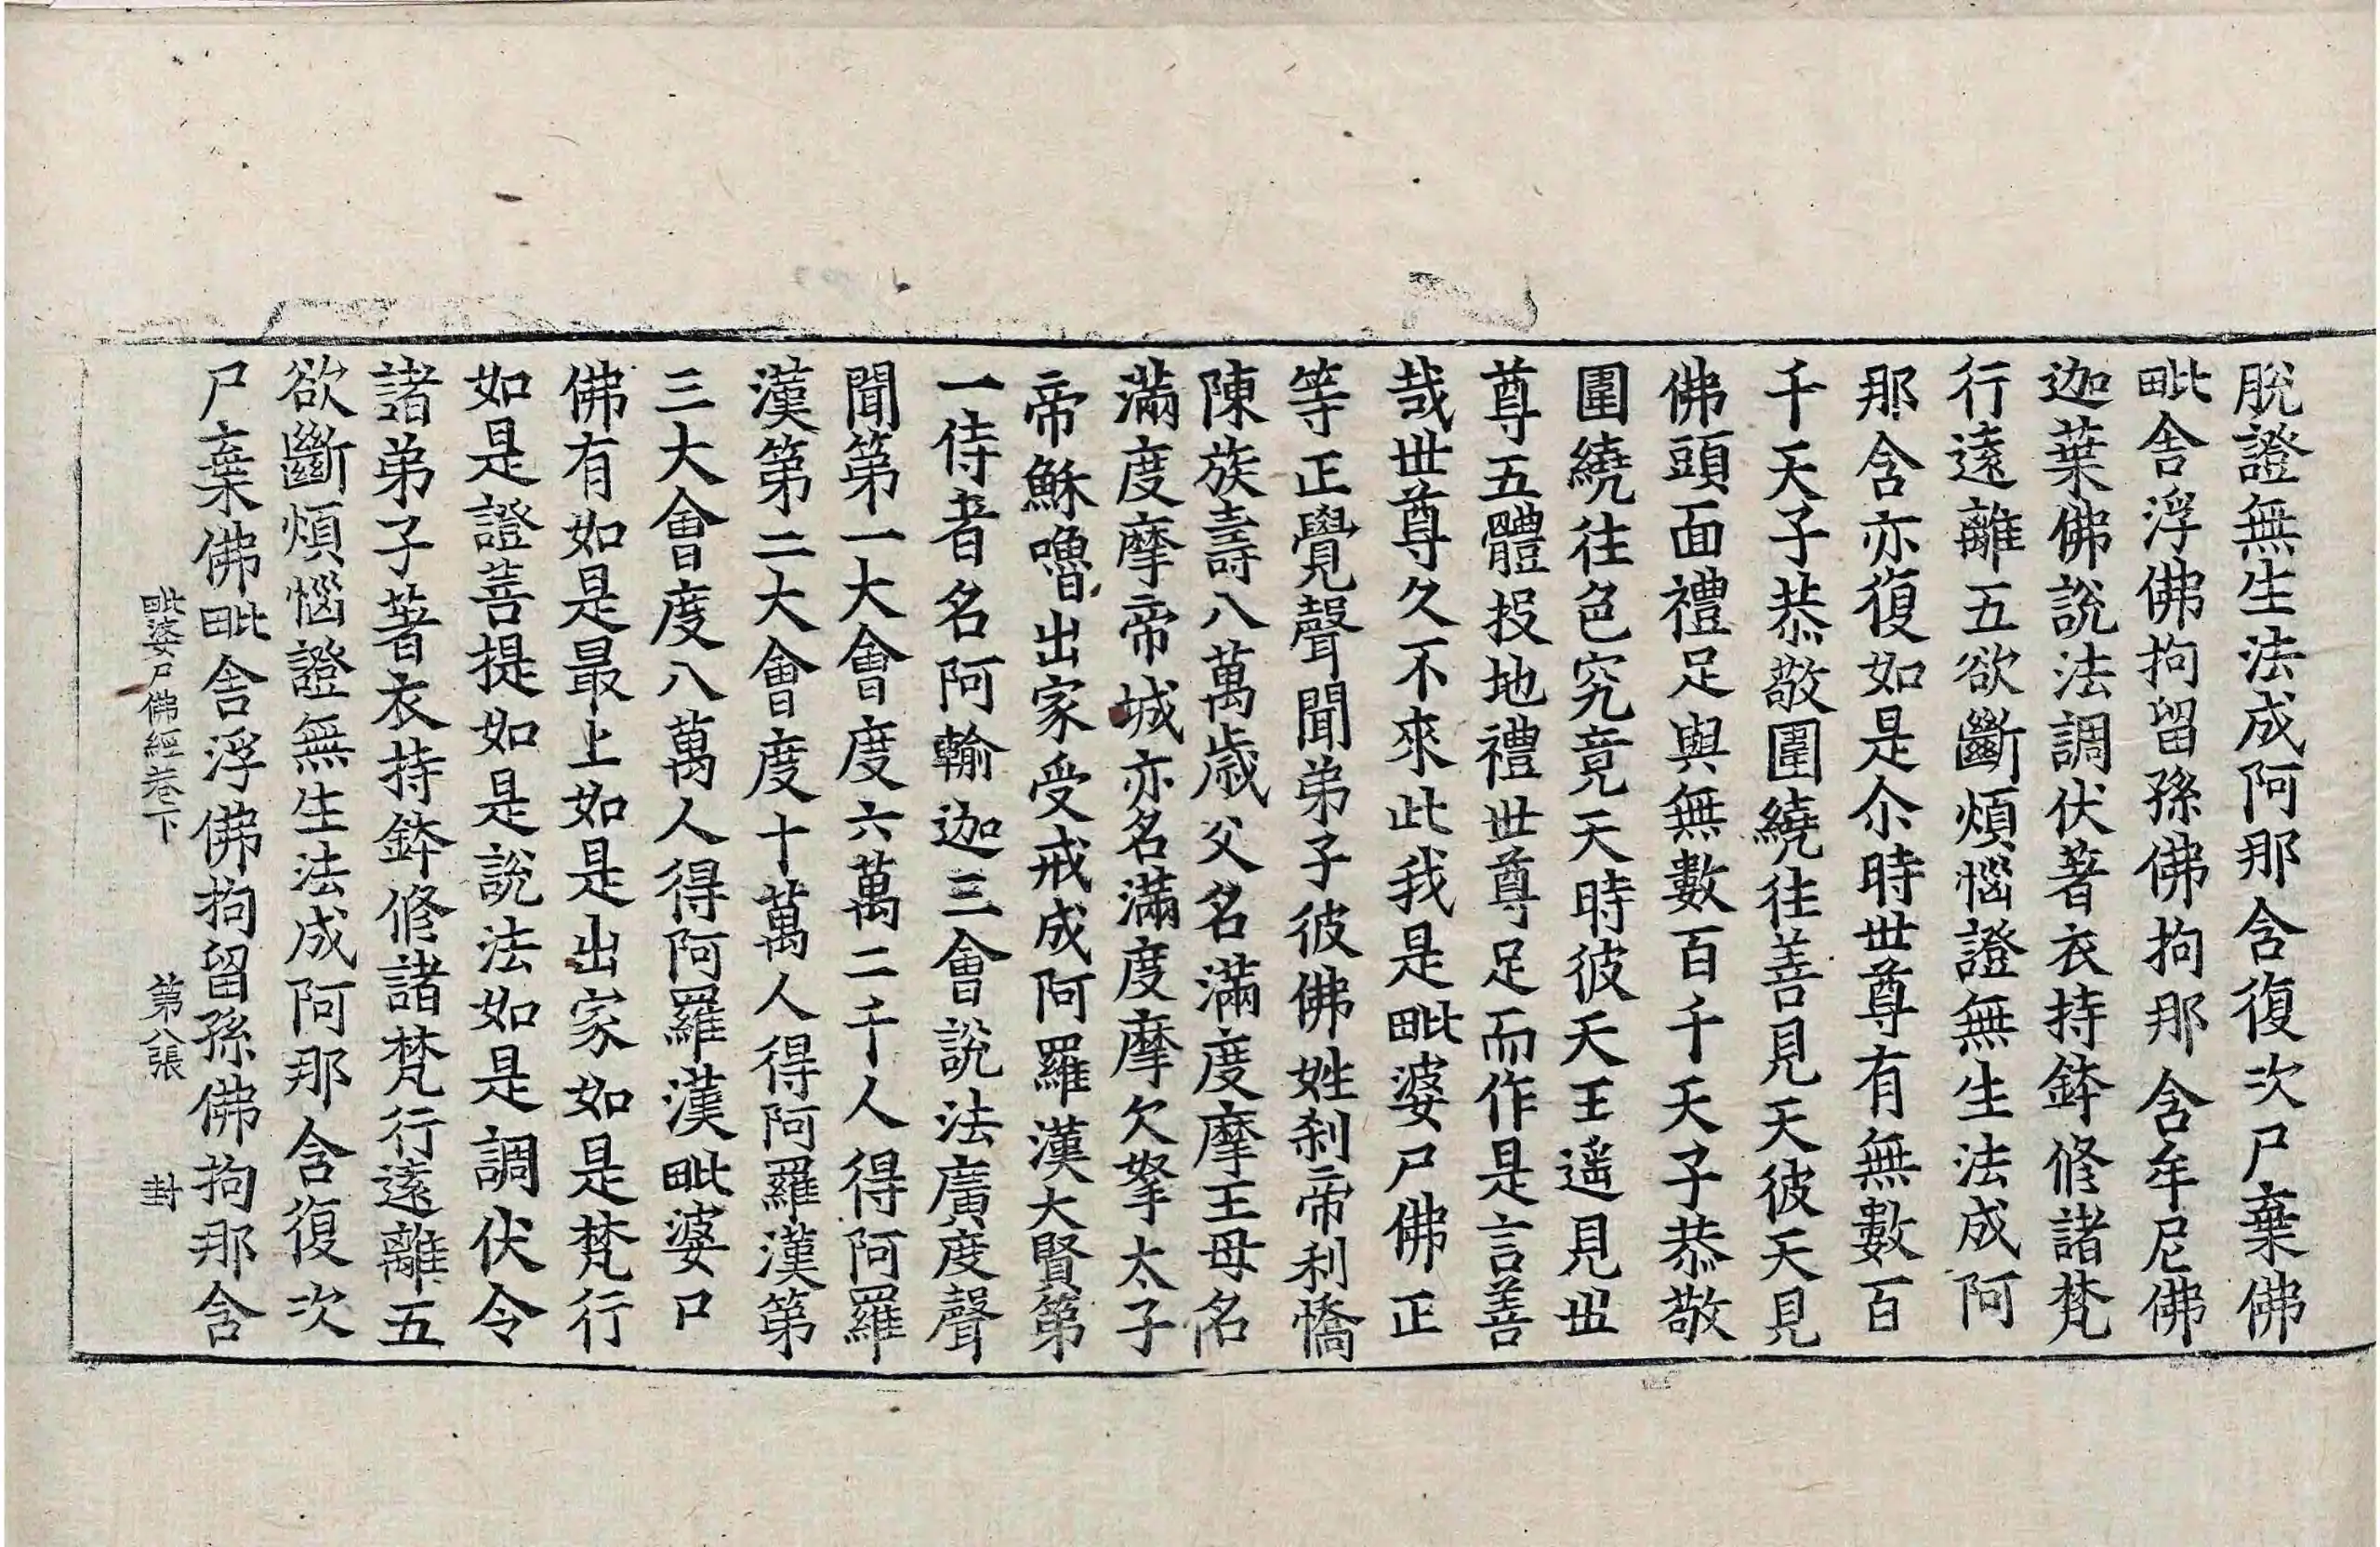 脫證無生法成阿那含復次尸棄佛
毗舍浮佛拘留孫佛拘那含牟尼佛
迦葉佛說法調伏著衣持鉢修諸梵
行遠離五欲斷煩惱證無生法成阿
那含亦復如是尒時世尊有無數百
千天子恭敬圍繞往善見天彼天見
佛頭面禮足與無數百千天子恭敬
圍繞往色究竟天時彼天王遥見世
尊五體投地禮世尊足而作是言善
哉世尊久不來此我是毗婆尸佛正
等正覺聲聞弟子彼佛姓剎帝利憍
陳族壽八萬歲父名滿度摩王母名
滿度摩帝城亦名滿度摩欠拏太子
帝穌嚕出家受戒成阿羅漢大賢第
一侍者名阿輸迦三會說法廣度聲
聞第一大會度六萬二千人得阿羅
漢第二大會度十萬人得阿羅漢第
三大會度八萬人得阿羅漢毗婆尸
佛有如是最上如是出家如是梵行
如是證菩提如是說法如是調伏令
諸弟子著衣持鉢修諸梵行遠離五
欲斷煩惱證無生法成阿那含復次
尸棄佛毗舍浮佛拘留孫佛拘那含
毗婆尸佛經卷下 第八張 封